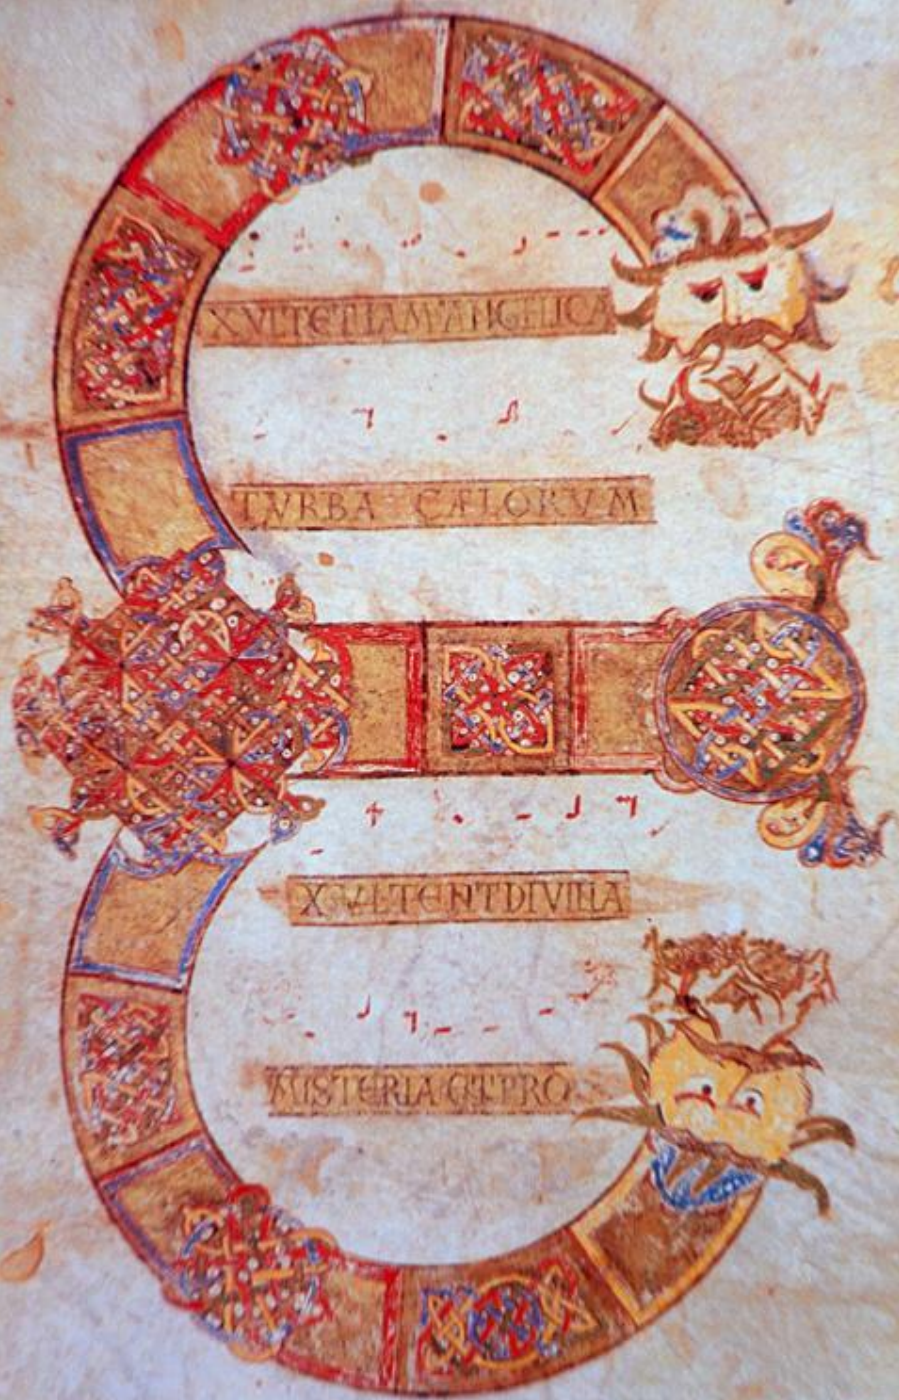 E
XVLTET IAM ANGELICA
TVRBA CÆLORVM
XVLTENT DIVINA
MISTERIA ET PRO